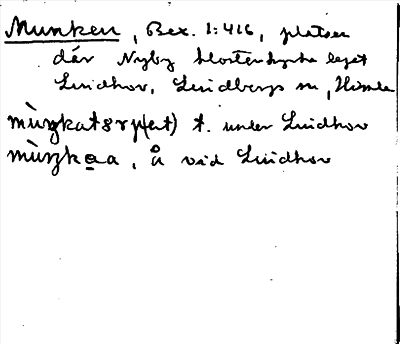 Munken, Bex. 1:416, platsen
där Nyby klosterkyrka legat
Lindhov, Lindbergs sn, Himle
mùŋkatɘrp(et) t. under Lindhov
mùŋka̲a, å vid Lindhov